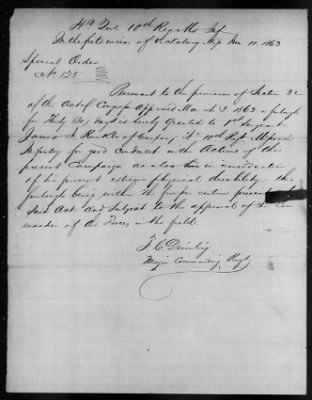 Hd Qrs 10th Regt Mo Inf
In the fortress in of Vicksburg Miss June 11. 1863
Special Order
No 125
Pursuant to the provision of Section 32
of the Act of Congress Approved March 3 1863 a furlough
for Thirty (30) days is hereby Granted to 1st Sergeant
James Runkle of Company "F" 10th Regt Missouri
Infantry for good Conduct in the Actions of the
present Campaign as also in consideration
of his present extreme physical disability this
furlough being within the per centum prescribed
Said Act. And Subject to the approval of the Com
mander of the Forces in the field
F C Deimling
Major Commanding Regt